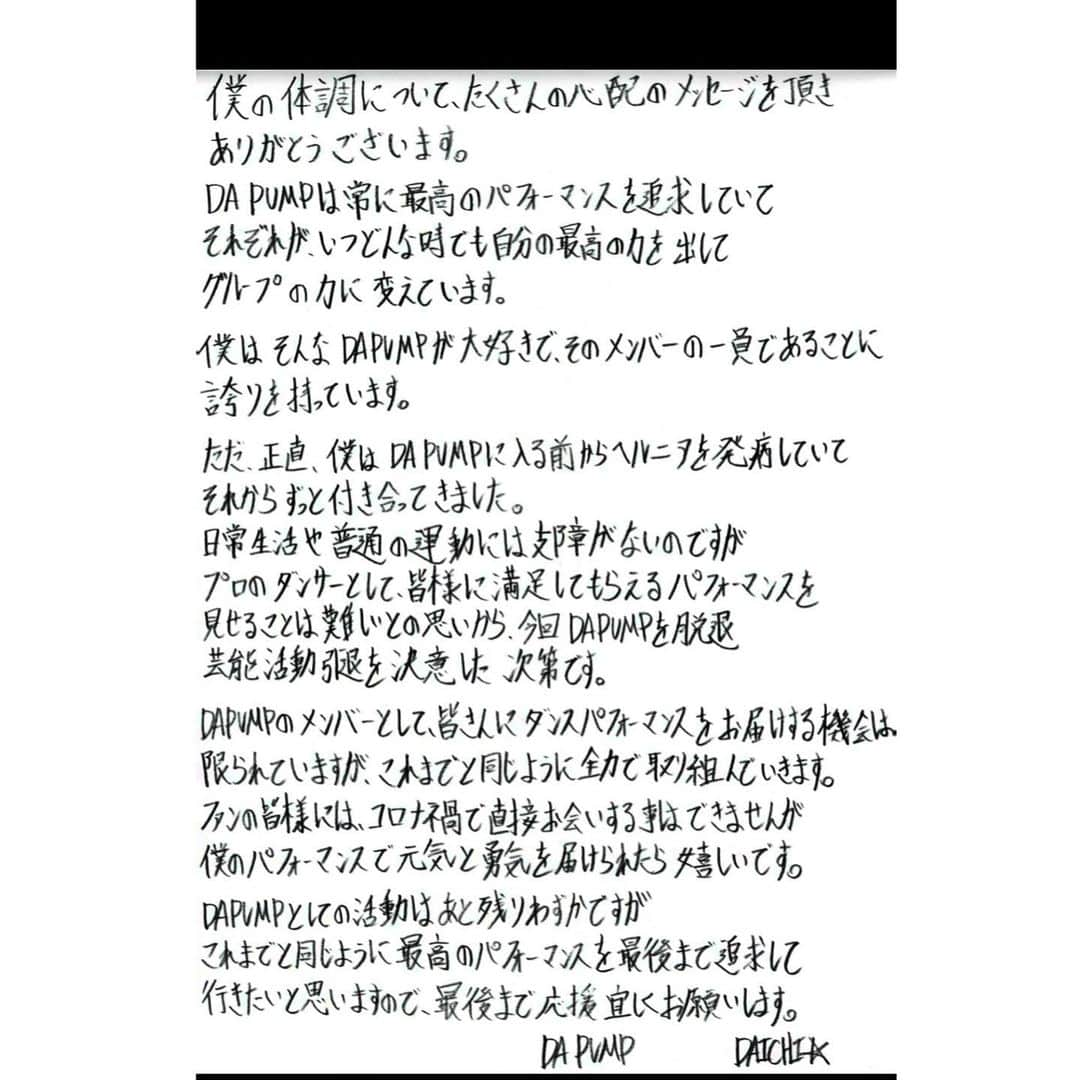 僕の体調について、たくさんの心配のメッセージを頂き
ありがとうございます。
DA PUMPは常に最高のパフォーマンスを追求していて
それぞれが、いつどんな時ても自分の最高の力を出して
グループの力に変えています。
僕はそんなDAPUMPが大好きで、そのメンバーの一員であることに
誇りを持っています。
ただ、正直、僕はDAPUMPに入る前からヘルニアを発病していて
それからずっと付き合ってきました。
日常生活や普通の運動には支障がないのですが
プロのダンサーとして、皆様に満足してもらえるパフォーマンスを
見せることは難しいとの思いから、今回DAPUMPを脱退
芸能活動引退を決意した次第です。
DAPUMPのメンバーとして、皆さんにダンスパフォーマンスをお届けする機会は、
限られていますが、これまでと同じように全力で取り組んでいきます。
ファンの皆様には、コロナ禍で直接お会いする事はできませんが
僕のパフォーマンスで元気と勇気を届けられたら嬉しいです。
DAPUMPとしての活動はあと残りわずかですが
これまでと同じように最高のパフォーマンスを最後まで追求して
行きたいと思いますので、最後まで応援宜しくお願いします。
DA PUMP DAICHI